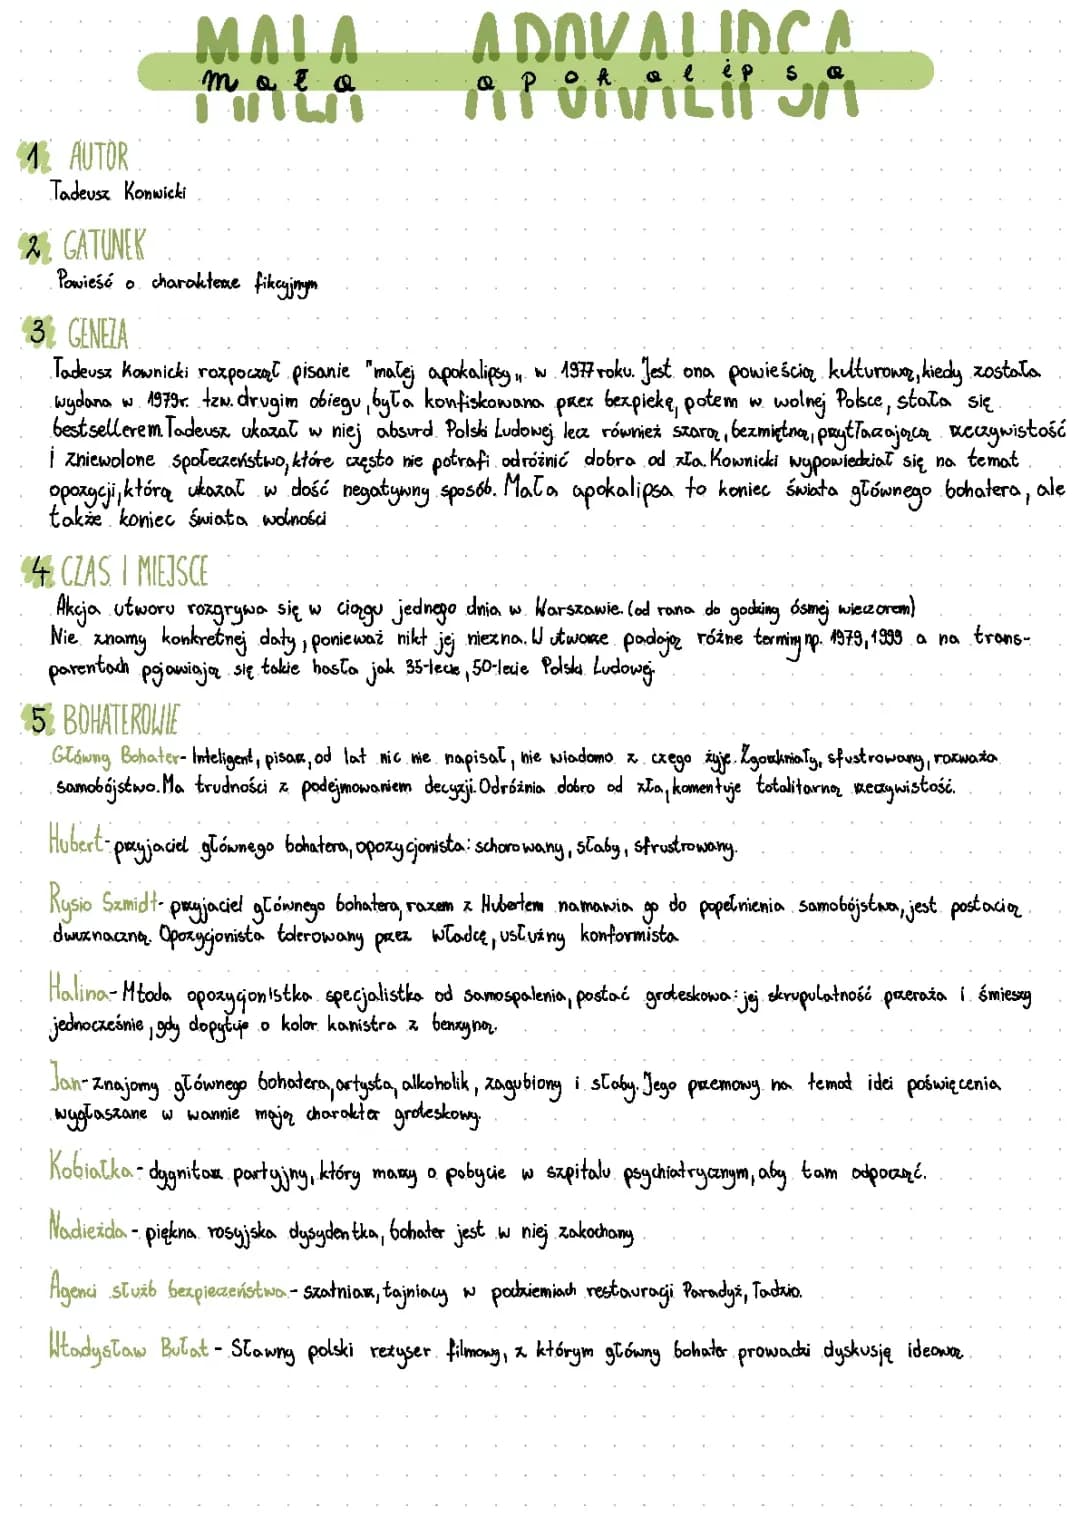 MAŁA APOKALIPSA
mała apokalipsa
1. AUTOR
Tadeusz Konwicki
2. GATUNEK
Powieść o charakterze fikcyjnym
3. GENEZA
Tadeusz Kownicki rozpoczął pisanie "małej apokalipsy„ w 1977 roku. Jest ona powieścią kulturową, kiedy została
wydana w 1979r. tzw. drugim obiegu, była konfiskowana przez bezpiekę, potem w wolnej Polsce, stała się
bestsellerem. Tadeusz ukazał w niej absurd Polski Ludowej lecz również szarą, bezmiętną, przytłaczającą rzeczywistość
i zniewolone społeczeństwo, które często nie potrafi odróżnić dobra od zła. Kownicki wypowiedział się na temat
opozycji, którą ukazał w dość negatywny sposób. Mała apokalipsa to koniec świata głównego bohatera, ale
także koniec świata wolności
4. CZAS I MIEJSCE
Akcja utworu rozgrywa się w ciągu jednego dnia w Warszawie. (od rana do godziny ósmej wieczorem)
Nie znamy konkretnej daty, ponieważ nikt jej niezna. W utworze padają różne terminy np. 1979, 1999 a na trans-
parentach pojawiają się takie hasła jak 35-lecie, 50-lecie Polski Ludowej.
5. BOHATEROWIE
Główny Bohater- Inteligent, pisarz, od lat nic nie napisał, nie wiadomo z czego żyje. Zgorzkniały, sfustrowany, rozważa
samobójstwo. Ma trudności z podejmowaniem decyzji. Odróżnia dobro od zła, komentuje totalitarną rzeczywistość.
Hubert- przyjaciel głównego bohatera, opozycjonista: schorowany, słaby, sfrustrowany.
Rysio Szmidt- przyjaciel głównego bohatera, razem z Hubertem namawia go do popełnienia samobójstwa, jest postacią
dwuznaczną. Opozycjonista tolerowany przez władcę, usłużny konformista
Halina- Młoda opozycjonistka specjalistka od samospalenia, postać groteskowa: jej skrupulatność przeraża i śmieszy
jednocześnie, gdy dopytuje o kolor kanistra z benzyną.
Jan- znajomy głównego bohatera, artysta, alkoholik, zagubiony i słaby. Jego przemowy na temat idei poświęcenia
wygłaszane w wannie mają charakter groteskowy.
Kobiałka- dygnitarz partyjny, który marzy o pobycie w szpitalu psychiatrycznym, aby tam odpocząć.
Nadieżda- piękna rosyjska dysydentka, bohater jest w niej zakochany
Agenci służb bezpieczeństwa- szatniarz, tajniacy w podziemiach restauracji Paradyż, Tadzio.
Władysław Bułat- Sławny polski reżyser filmowy, z którym główny bohater prowadzi dyskusję ideową